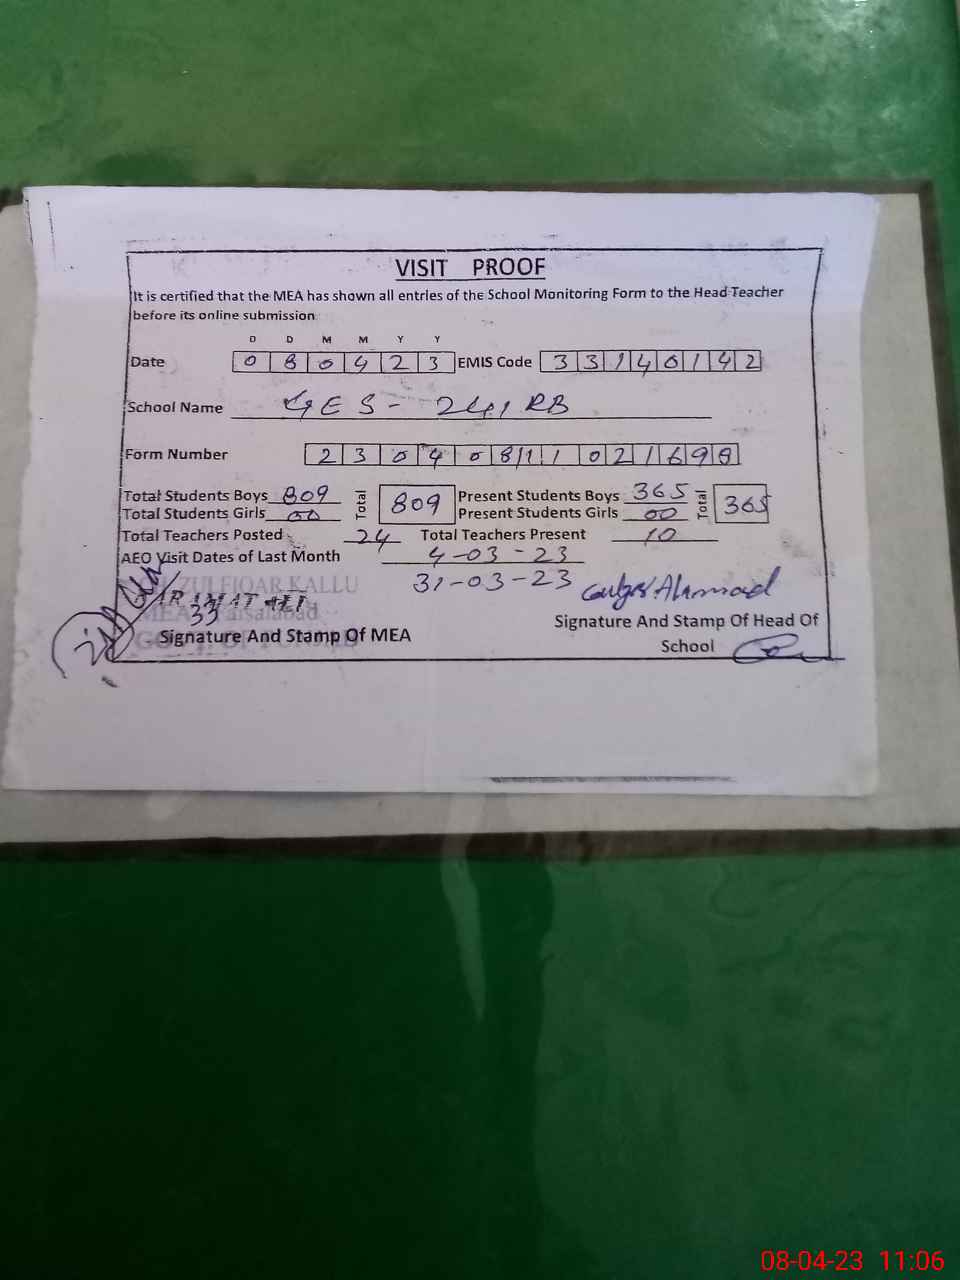 VISIT PROOF
It is certified that the MEA has shown all entries of the School Monitoring Form to the Head Teacher
before its online submission
D D M M Y Y
Date 080423 EMIS Code 33140142
School Name GES - 241 RB
Form Number 23040811021698
Total Students Boys 809 Total 809 Present Students Boys 365 Total 365
Total Students Girls 00 Present Students Girls 00
Total Teachers Posted 24 Total Teachers Present 10
AEO Visit Dates of Last Month 4-03-23
31-03-23
ZULFIQAR KALLU
KARAMAT ALI
33
MEA Faisalabad
Signature And Stamp Of MEA
GOVT. OF PUNJAB
Ahmad
Signature And Stamp Of Head Of
School
08-04-23 11:06